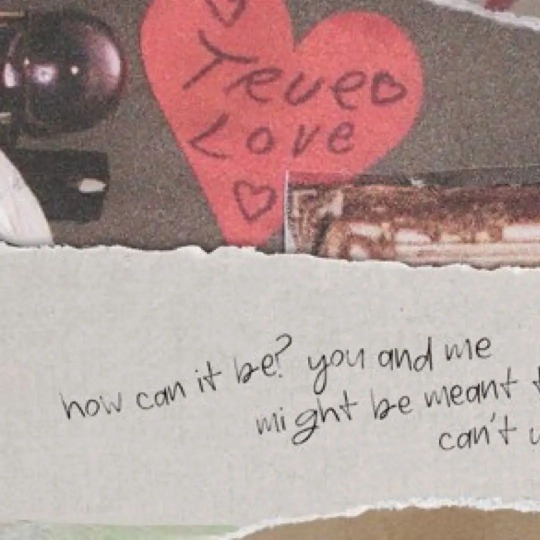 Treueo
Love
how can it be? you and me
might be meant t
can't u